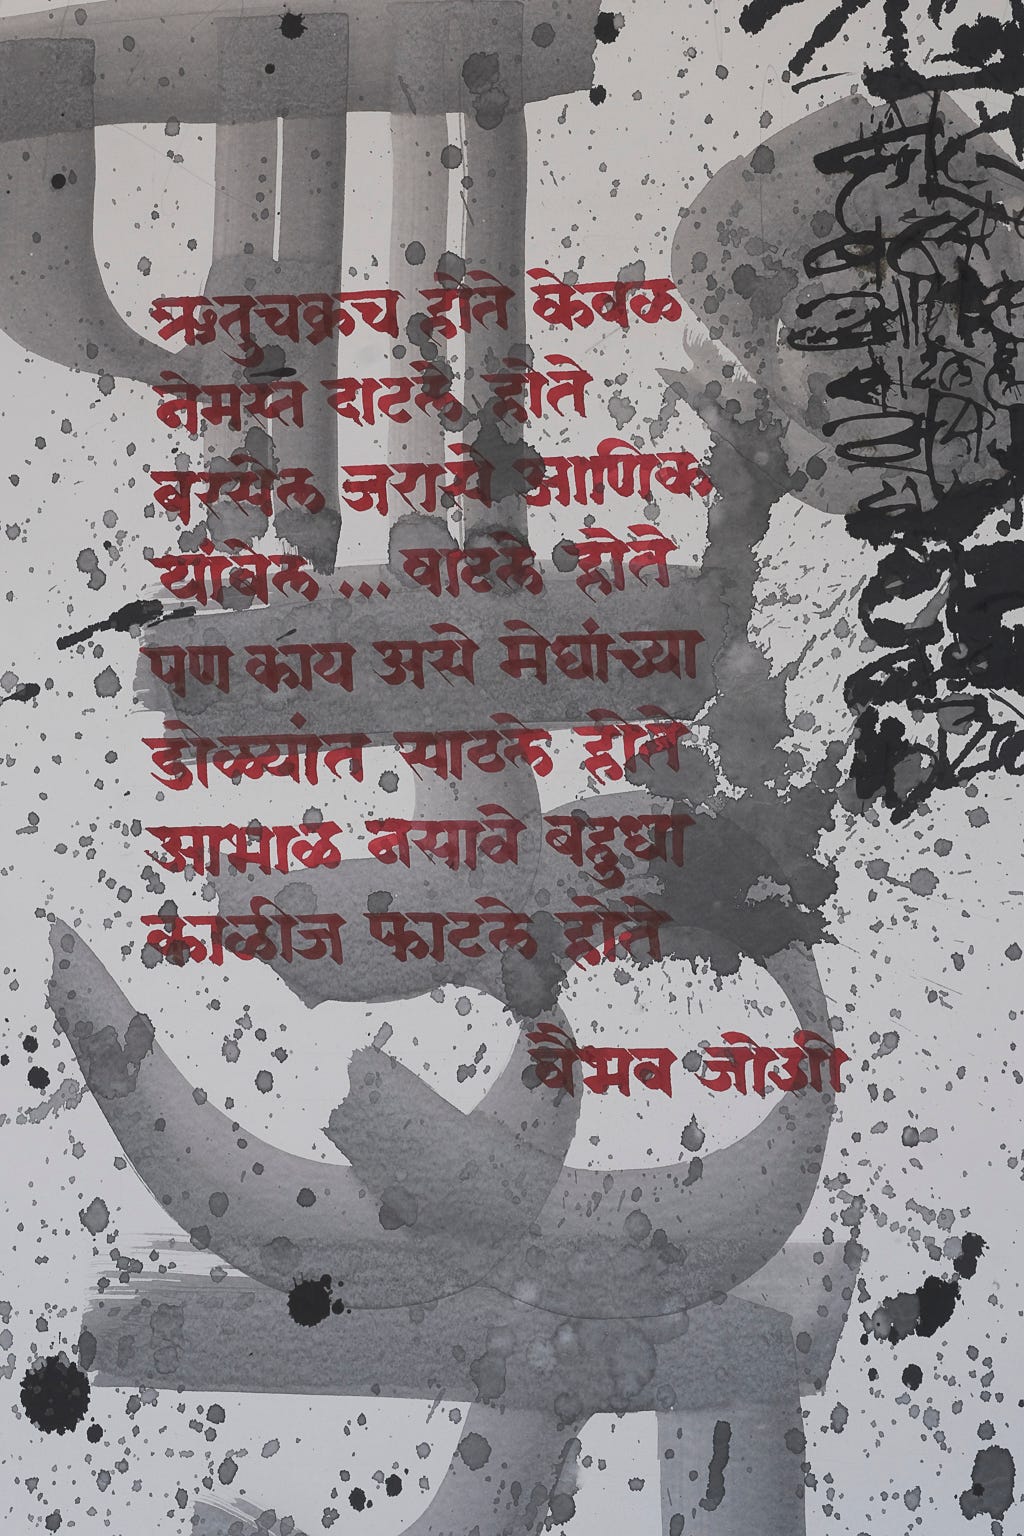 ऋतुचक्रच होते केवळ
नेमस्त दाटले होते
बरसेल जरासे आणिक
थांबेल ... वाटले होते
पण काय असे मेघांच्या
डोळ्यांत साठले होते
आभाळ नसावे बहुधा
काळीज फाटले होते
वैभव जोशी